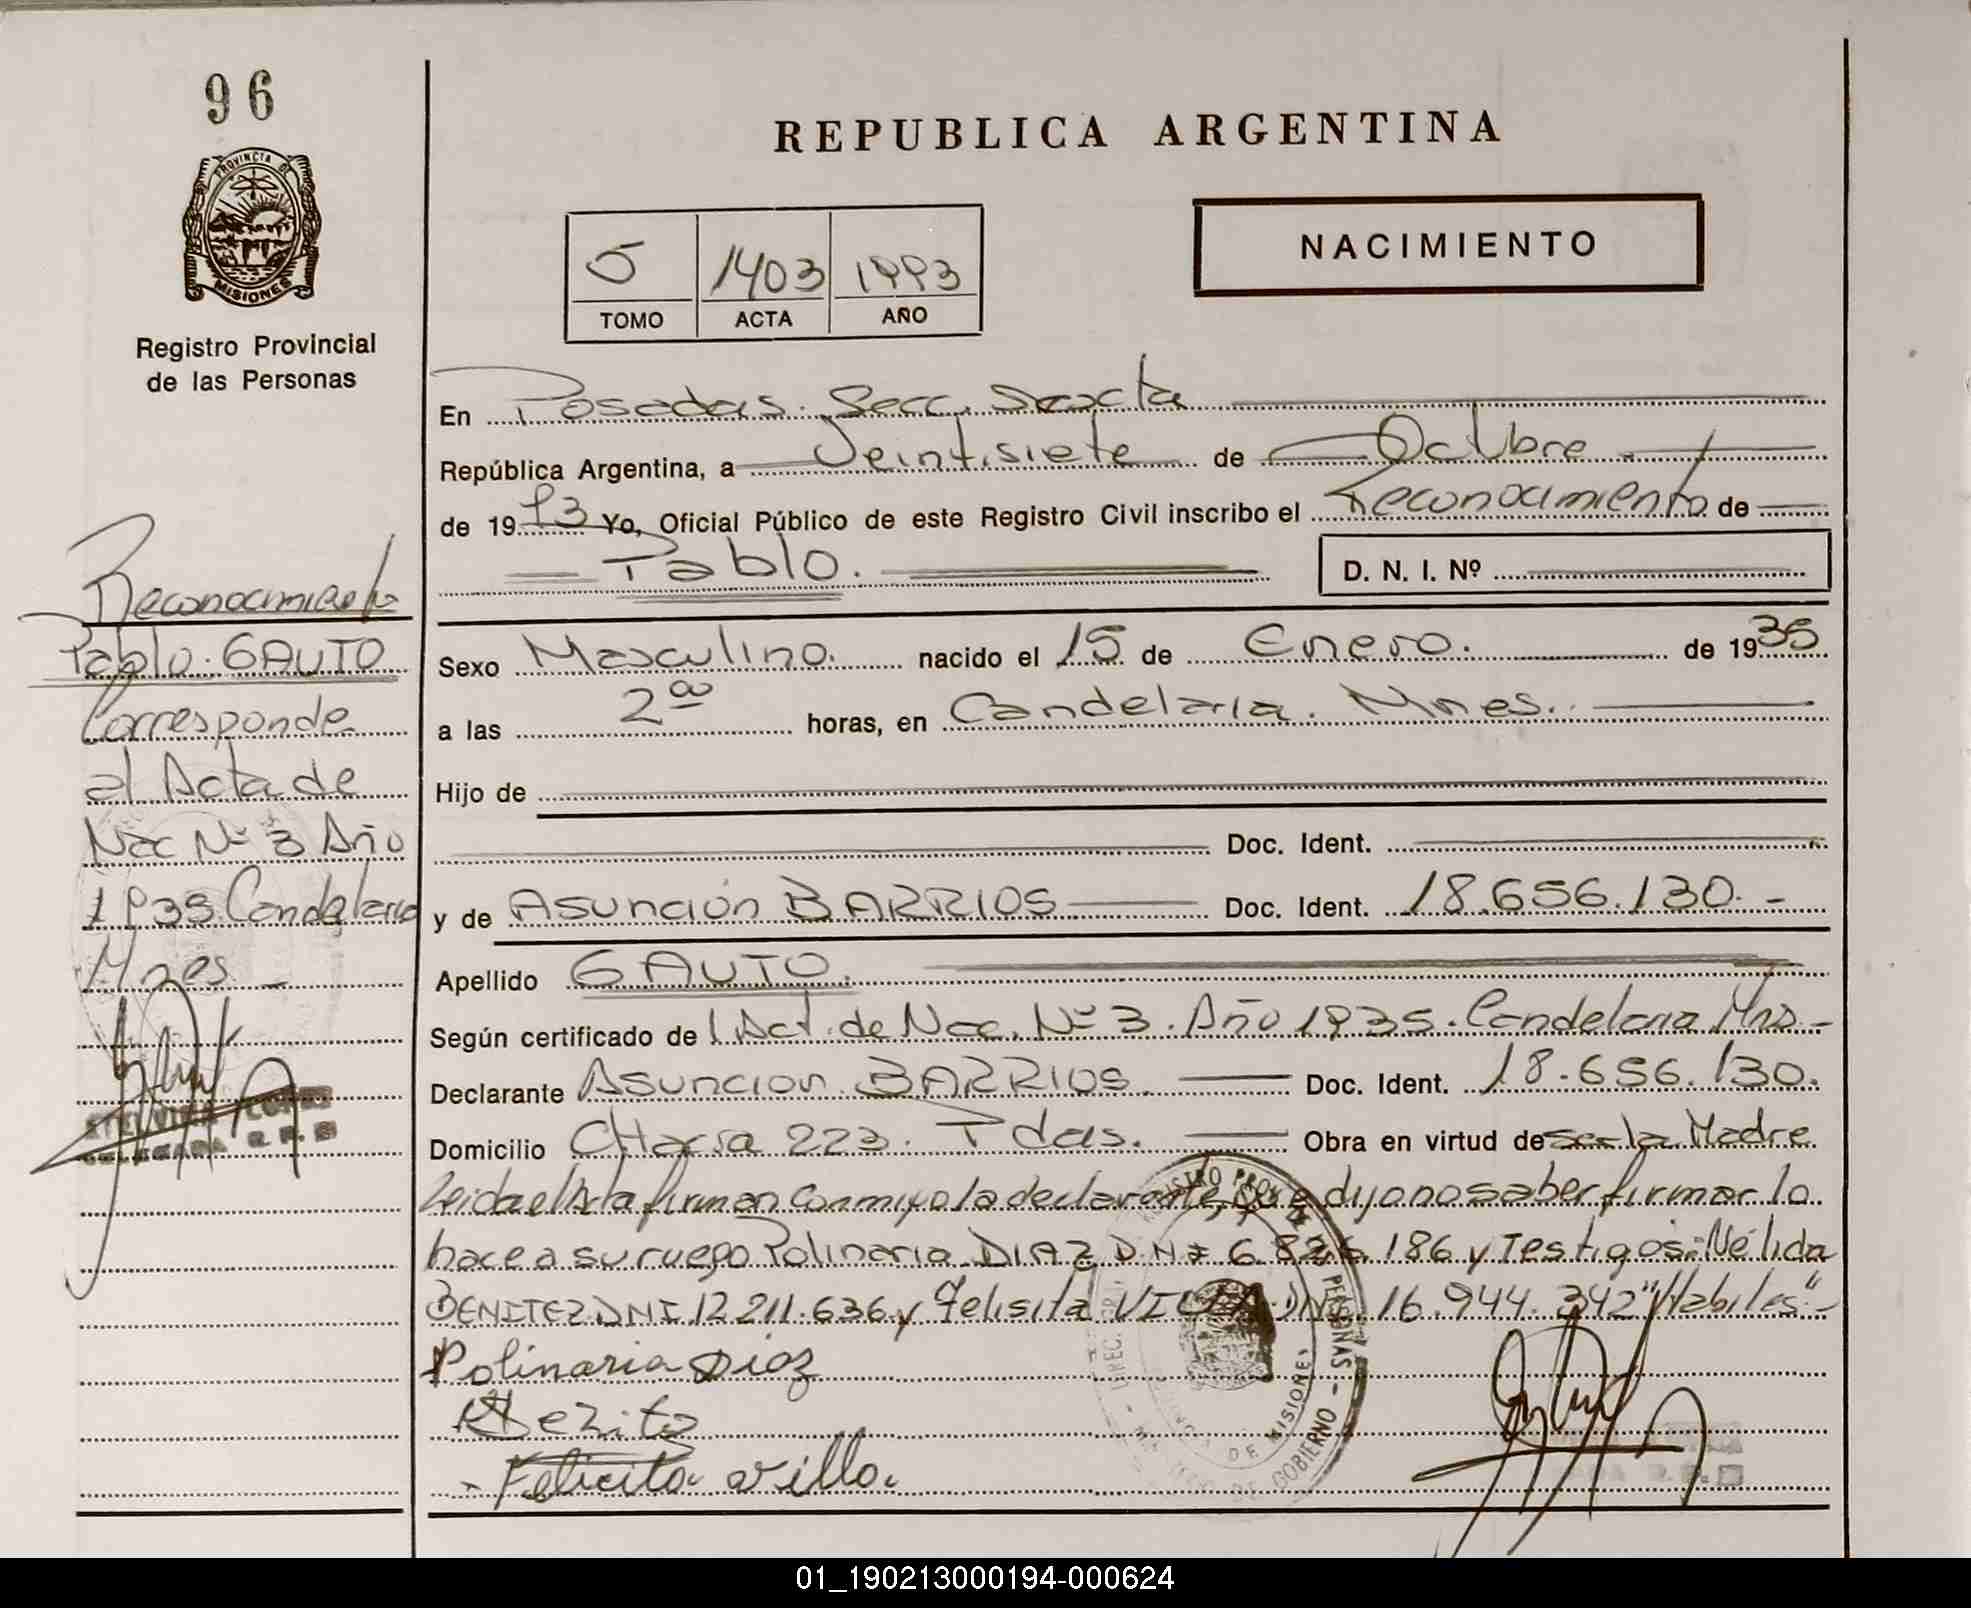 96
PROVINCIA DE
MISIONES
Registro Provincial
de las Personas
REPUBLICA ARGENTINA
NACIMIENTO
5 1403 1993
TOMO ACTA AÑO
En Posadas. Secc. Sexta
República Argentina, a Veintisiete de Octubre
de 19 93 Yo, Oficial Público de este Registro Civil inscribo el Reconocimiento de
Pablo.
D. N. I. Nº
Sexo Masculino. nacido el 15 de Enero. de 1935
a las 2ºº horas, en Candelaria. Mnes.
Hijo de
Doc. Ident.
y de Asunción BARRIOS Doc. Ident. 18.656.130.-
Apellido GAUTO.
Según certificado de Act. de Nac. Nº 3. Año 1935. Candelaria Mns-
Declarante Asuncion BARRIOS. Doc. Ident. 18.656.130.
Domicilio CHacra 223. Pdas. Obra en virtud de ser la Madre
Leida el Acta firman conmigo la declarante, Que dijo no saber firmar lo
hace a su ruego Polinaria DIAZ D.N.I 6.826.186 y Testigos: Nélida
BENITEZ DNI. 12.211.636 y Felisita VILLA DNI. 16.944.342 "Habiles".-
Polinaria Diaz
Benitz
Felicita villa.
Reconocimiento
Pablo. GAUTO
Corresponde
al Acta de
Nac Nº 3 Año
1935. Candelaria
Mnes. -
DELEGADA R. P. P.
REGISTRO PROV. PERSONAS
MINISTERIO DE GOBIERNO
PROVINCIA DE MISIONES
01_190213000194-000624